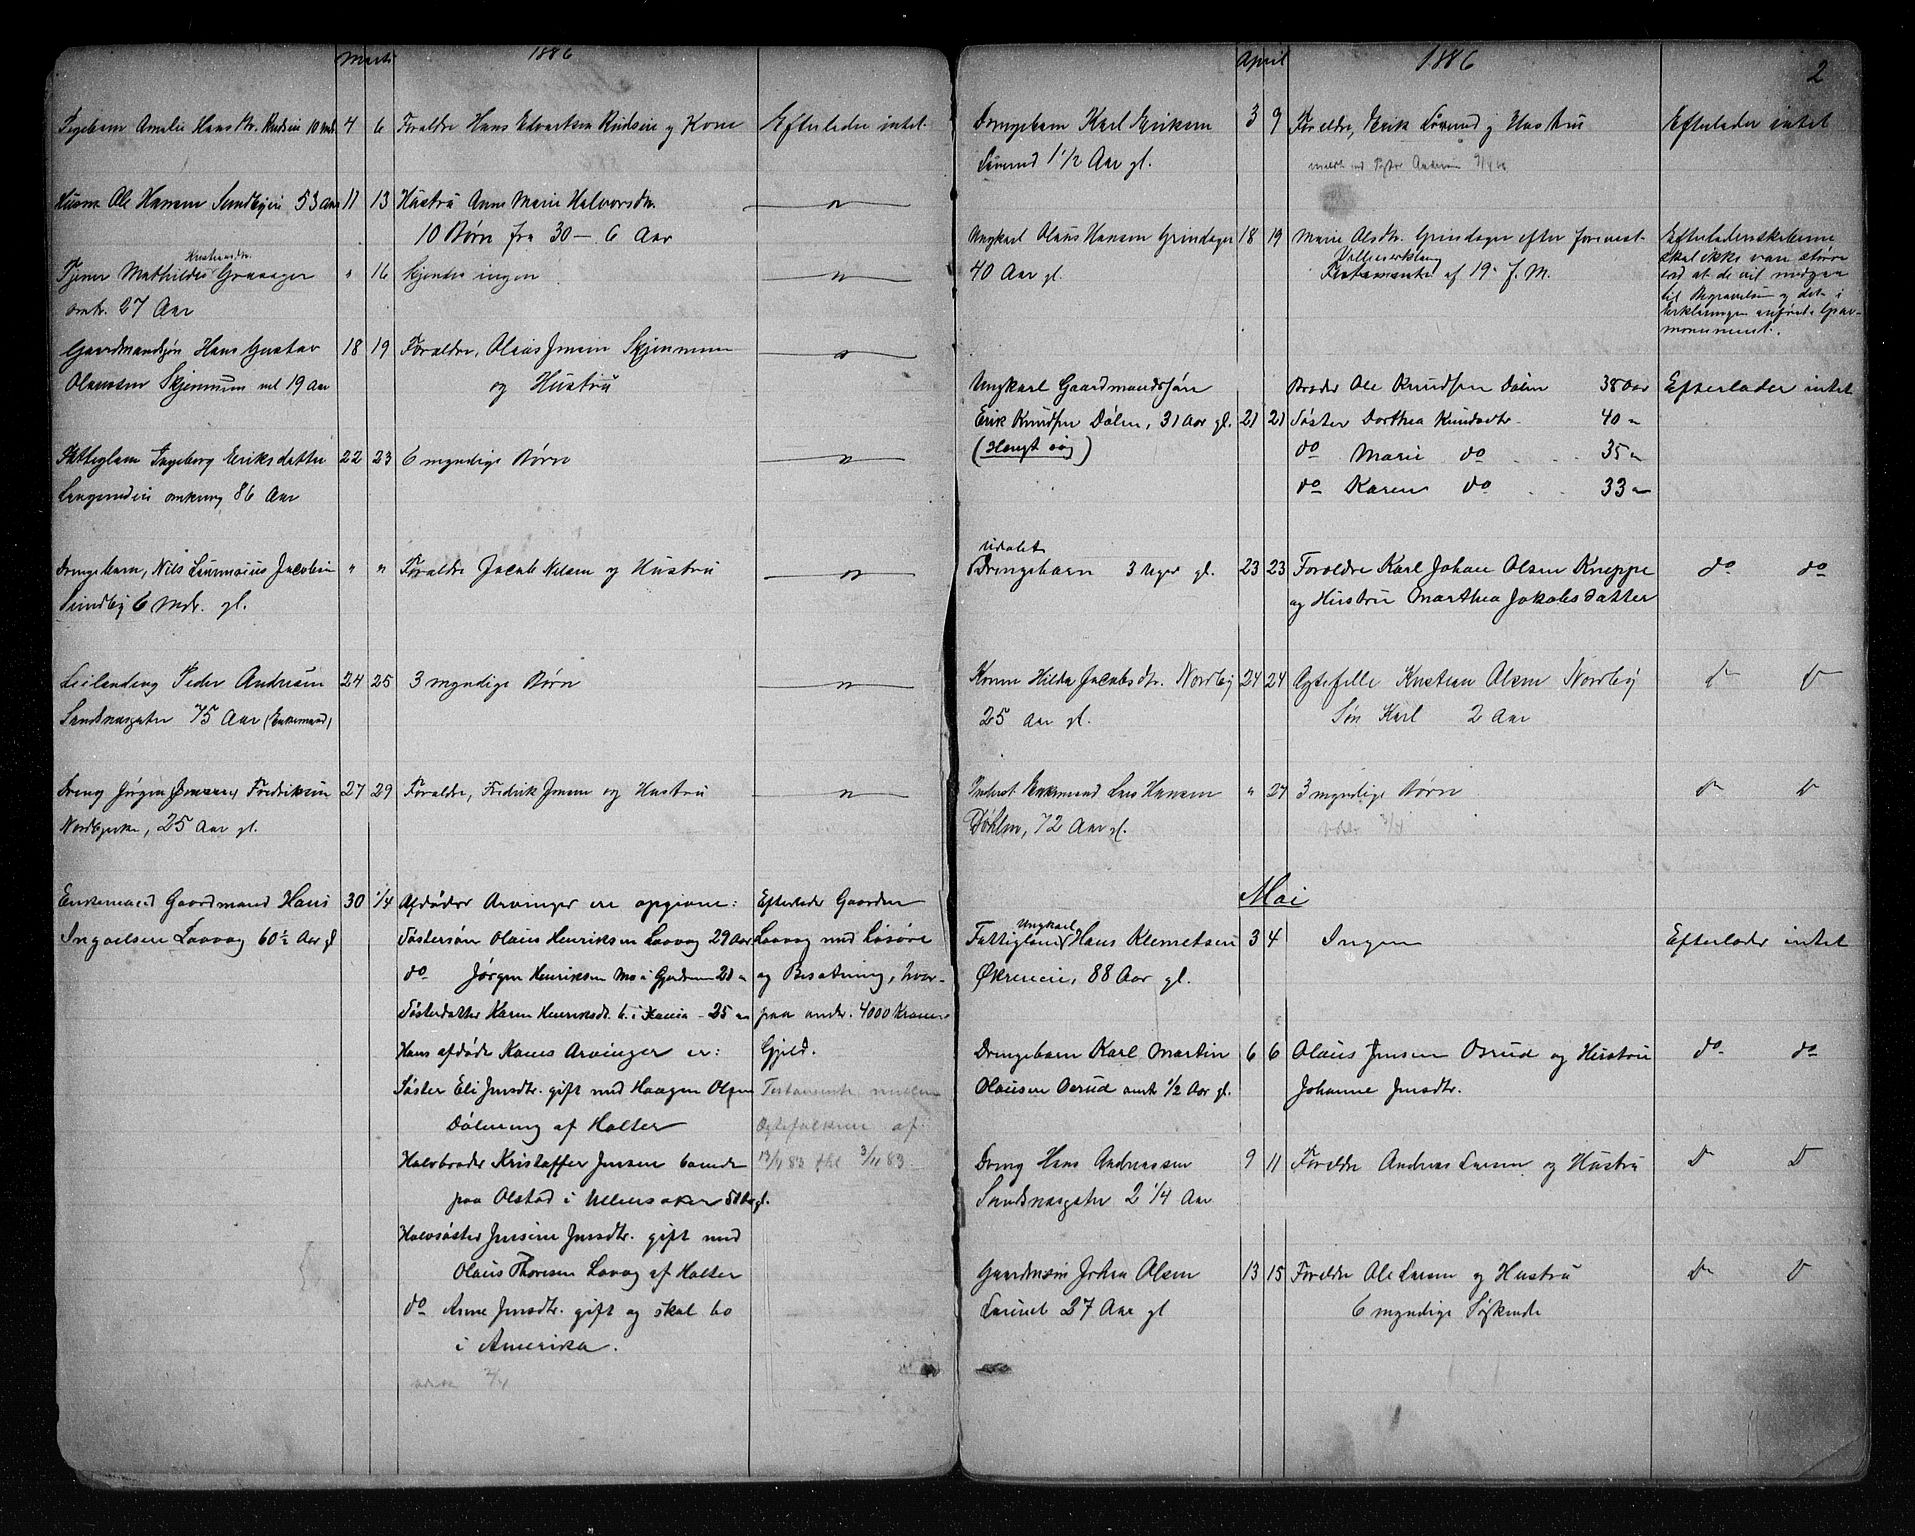 1886
Marts
Pigebarn Amalie Hansdtr. Rudseie 10 mdr. 4 6 Forældre Hans Edvartsen Rudseie og Kone Efterlader intet.
Husm. Ole Hansen Sundbyeie 53 Aar 11 13 Hustru Anne Marie Halvorsdtr. — " —
10 Børn fra 30 — 6 Aar
Kristiansdtr.
Tjener Mathilde Graaager " 16 Kjendes ingen — " —
omkr. 27 Aar
Gaardmandsøn Hans Gustav 18 19 Forældre, Olaus Jensen Skjennum — " —
Olaussen Skjennum vel 19 Aar og Hustru
Fattiglem Ingeborg Eriksdatter 22 23 6 myndige Børn — " —
omkring 86 Aar
Drengebarn, Nils Laurnsius Jacobsen " " Forældre Jacob Nilsen og Hustru — " —
Sundby 6 Mdr. gl.
Leilending Peder Andresen 24 25 3 myndige Børn — " —
Sandsnesgater 75 Aar (Enkemand)
Dreng Jørgen (Jensen) Fredriksen 27 29 Forældre, Fredrik Jensen og Hustru — " —
25 Aar gl.
Enkemand Gaardmand Hans 30 1/4 Afdødes Arvinger er opgivne: Efterlader Gaarden
Ingvelsen Laavag 60½ Aar gl Søstersøn Olaus Henriksen Laavag 29 Aar Laavag med Løsøre
do Jørgen Henriksen Mo i Gjerdrum 28 " og Besætning, hvor-
Søsterdatter Karen Henriksdt. b. i Xania - 25 " paa andr. 4000 Kroner
Hans afdøde Kones Arvinger er: Gjeld.
Søster Eli Jensdtr. gift med Haagen Olsen Testamente mellem
Dølening af Holter Ægtefolkene af
Halvbroder Kristoffer Jensen boende 13/4 83 thl 3/11 83.
paa Olstad i Ullensaker 50 Aar gl.
Halvsøster Jensine Jensdtr. gift med
Olaus Thoresen Lavag af Holter
do Anne Jensdtr. gift og skal bo
i Amerika.
2/4
1886
2
April
Drengebarn Karl Eriksen 3 9 Forældre, Erik Lørend og Hustru Efterlader intet
Lørend 1½ Aar gl.
Ungkarl Olaus Hansen Grindager 18 19 Marie Olsdtr. Grindager efter forevist Efterladenskaberne
Villieserklæring skal ikke være større
40 Aar gl. Testamente af 19. f. M. end at de vil medgaa
til Begravelsen og det i
Erklæringen anførte Grav-
monument.
Ungkarl Gaardmandssøn Broder Ole Knudsen Dølen 38 Aar Efterlader intet
Erik Knudsen Dølen, 31 Aar gl. 21 21 Søster Dorthea Knudsdtr. 40 "
(Hængt sig) do Marie do 35 "
do Karen do 33 "
udøbt
Drengebarn 3 Uger gl. 23 23 Forældre Karl Johan Olsen Kneppe do do
og Hustru Marthea Jakobsdatter
Kone Hilda Jacobsdtr. Nordby 24 24 Ægtefelle Kristian Olsen Nordby do do
25 Aar gl. Søn Karl 2 Aar
Inderst Enkemand Lars Hansen " 27 3 myndige Børn do do
Døhlen, 72 Aar gl. 3/4
Mai
Ungkarl
Fattiglem Hans Klemetsen 3 4 Ingen Efterlader intet
Økreneie, 88 Aar gl.
Drengebarn Karl Martin 6 6 Olaus Jensen Osrud og Hustru do do
Olausen Osrud omt. 1/2 Aar gl. Johanne Jensdtr.
Dreng Hans Andreassen 9 11 Forældre Andreas Larsen og Hustru do do
Sandsnesgater 2 1/4 Aar
Gaardmsøn Johan Olsen 13 15 Forældre Ole Larsen og Hustru do do
27 Aar gl 6 myndige Søskende